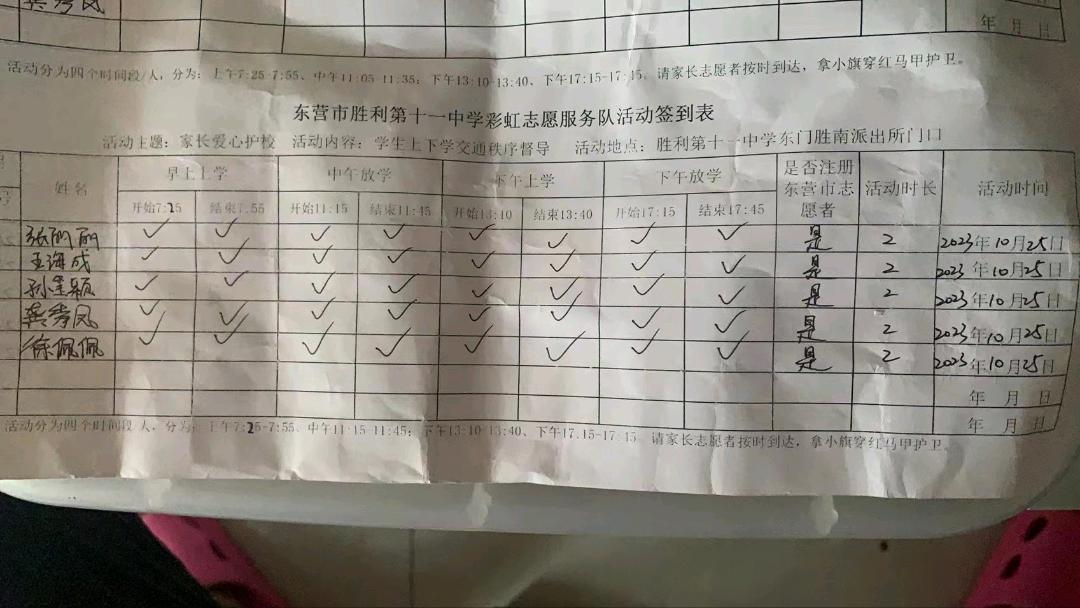 龚秀凤
年 月 日
活动分为四个时间段/人，分为：上午7:25-7:55、中午11:05-11:35；下午13:10-13:40、下午17:15-17:45、请家长志愿者按时到达，拿小旗穿红马甲护卫。
东营市胜利第十一中学彩虹志愿服务队活动签到表
活动主题：家长爱心护校 活动内容：学生上下学交通秩序督导 活动地点：胜利第十一中学东门胜南派出所门口
号 姓名 早上上学 中午放学 下午上学 下午放学 是否注册东营市志愿者 活动时长 活动时间
开始7:25 结束7:55 开始11:15 结束11:45 开始13:10 结束13:40 开始17:15 结束17:45
张丽丽 ✓ ✓ ✓ ✓ ✓ ✓ ✓ ✓ 是 2 2023年10月25日
王海成 ✓ ✓ ✓ ✓ ✓ ✓ ✓ ✓ 是 2 2023年10月25日
孙 颖 ✓ ✓ ✓ ✓ ✓ ✓ ✓ ✓ 是 2 2023年10月25日
龚秀凤 ✓ ✓ ✓ ✓ ✓ ✓ ✓ ✓ 是 2 2023年10月25日
徐佩佩 ✓ ✓ ✓ ✓ ✓ ✓ ✓ ✓ 是 2 2023年10月25日
年 月 日
年 月 日
活动分为四个时间段/人，分为：上午7:25-7:55、中午11:15-11:45；下午13:10-13:40、下午17:15-17:45、请家长志愿者按时到达，拿小旗穿红马甲护卫。